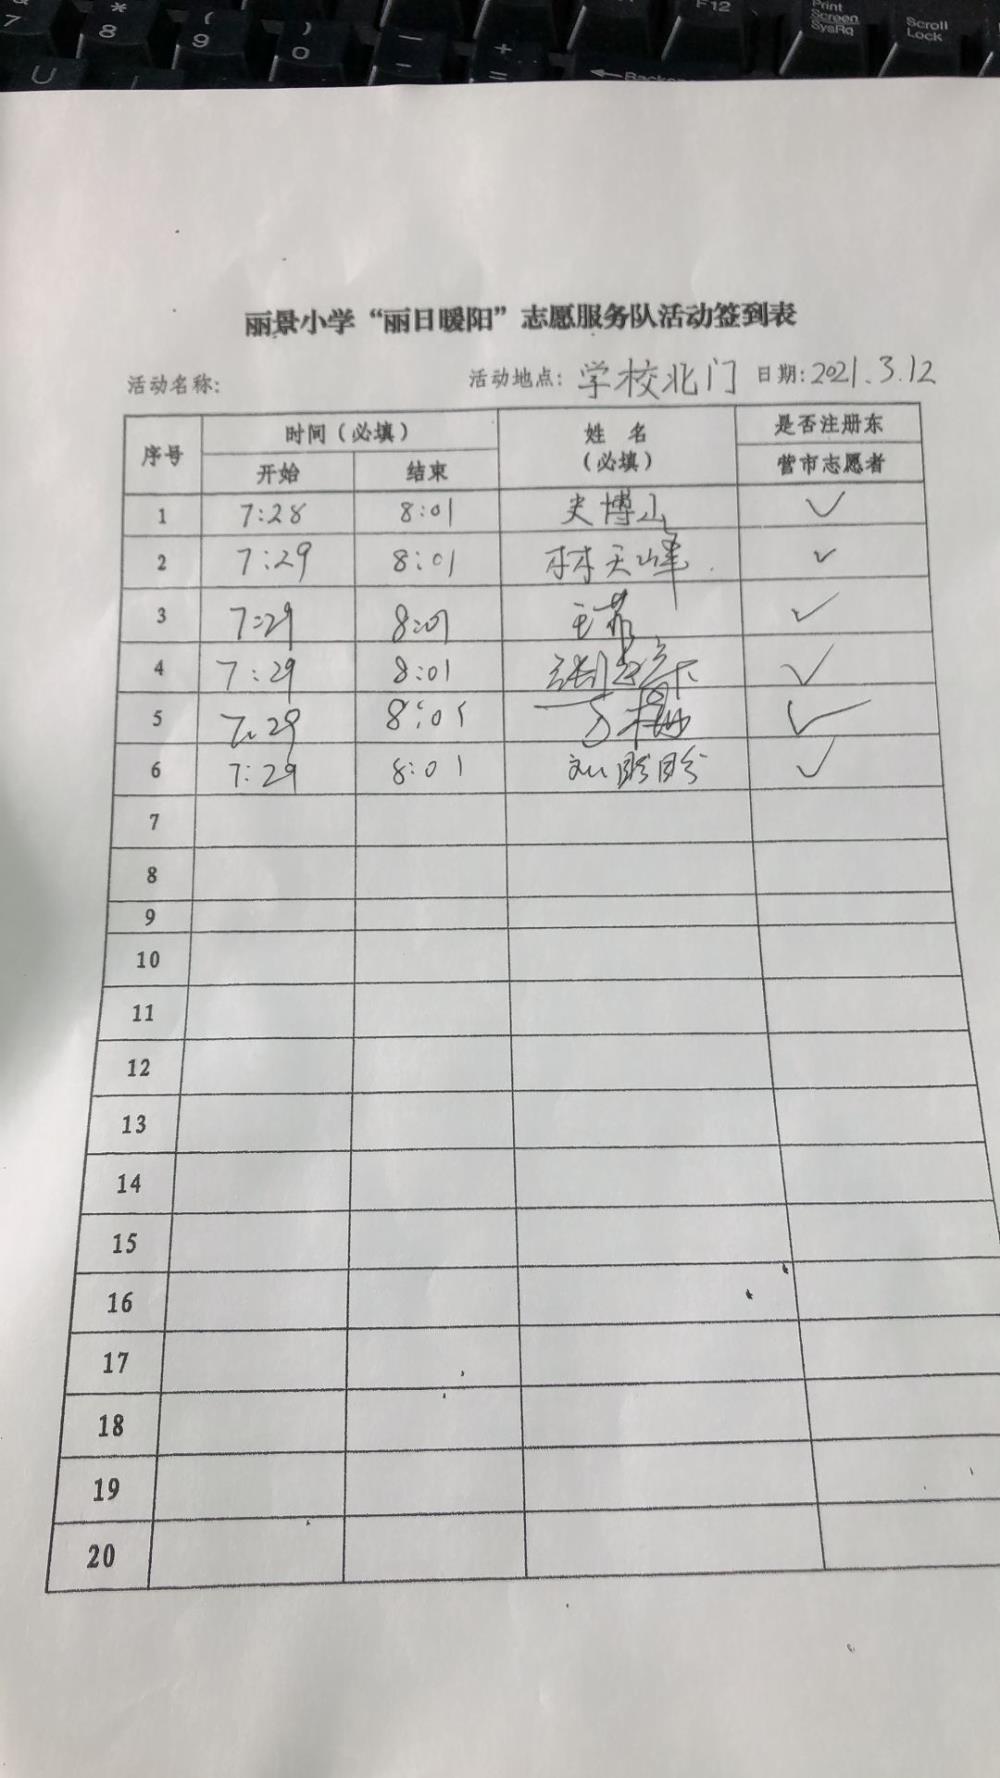 * 7
8
( 9
) 0
— -
+ =
F12
Print Screen SysRq
Scroll Lock
U
丽景小学“丽日暖阳”志愿服务队活动签到表
活动名称: 活动地点: 学校北门 日期: 2021.3.12
序号 时间(必填) 姓 名 (必填) 是否注册东
开始 结束 营市志愿者
1 7:28 8:01 史博山 ✓
2 7:29 8:01 林天峰 ✓
3 7:29 8:01 ✓
4 7:29 8:01 ✓
5 7:29 8:01 ✓
6 7:29 8:01 刘盼盼 ✓
7
8
9
10
11
12
13
14
15
16
17
18
19
20